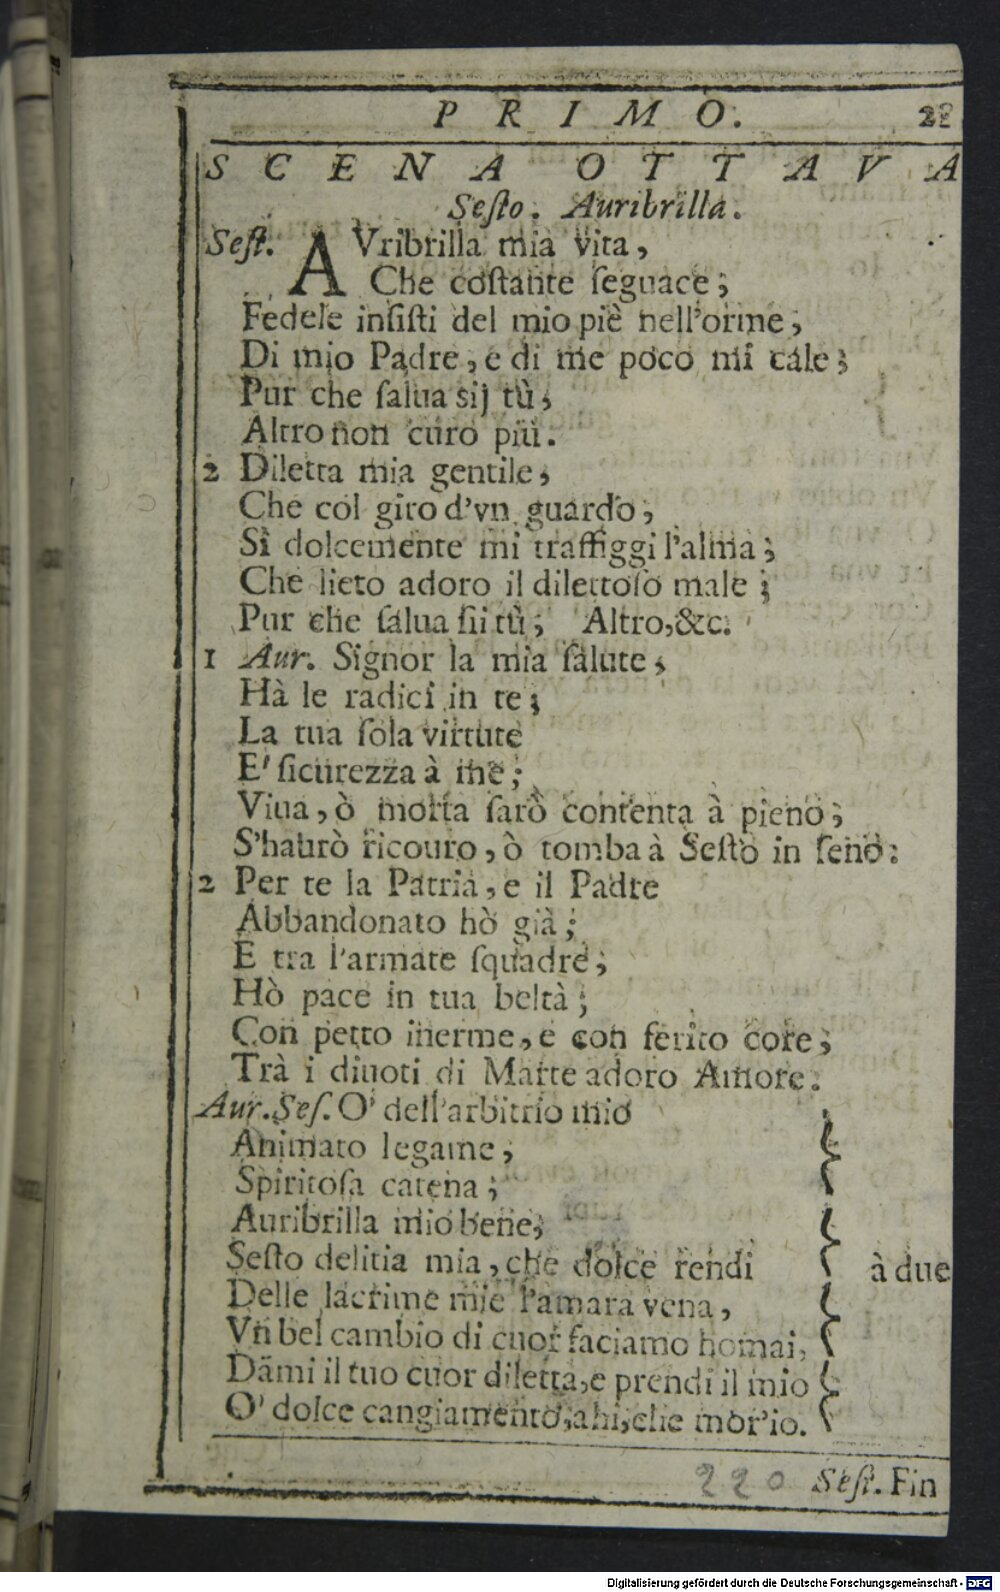 PRIMO.
SCENA OTTAVA
Seſto. Auribrilla.
Seſt. AVribrilla mia vita,
Che coſtante ſeguace;
Fedele inſiſti del mio piè nell'orme,
Di mio Padre, e di me poco mi cale;
Pur che ſalua sij tù;
Altro non curo più.
2 Diletta mia gentile;
Che col giro d'vn guardo,
Sì dolcemente mi traffiggi l'alma;
Che lieto adoro il dilettoſo male;
Pur che ſalua ſii tù; Altro,&c.
1 Aur. Signor la mia ſalute,
Hà le radici in te;
La tua ſola virtute
E' ſicurezza à me;
Viua, ò morta ſarò contenta à pieno;
S'haurò ricouro, ò tomba à Seſto in ſeno:
2 Per te la Patria, e il Padre
Abbandonato hò già;
E tra l'armate ſquadre;
Hò pace in tua beltà;
Con petto inerme, e con ferito core;
Trà i diuoti di Marte adoro Amore.
Aur. Seſ. O' dell'arbitrio mio
Animato legame,
Spiritoſa catena;
Auribrilla mio bene;
Seſto delitia mia, che dolce rendi à due
Delle lacrime mie l'amara vena,
Vn bel cambio di cuor faciamo homai,
Dāmi il tuo cuor diletta, e prendi il mio
O' dolce cangiamento, ahi, che mor'io.
220 Seſt. Fin
Digitalisierung gefördert durch die Deutsche Forschungsgemeinschaft - DFG